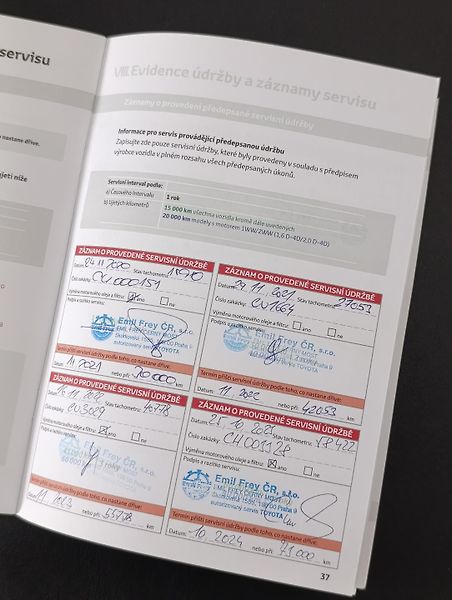 servisu
nastane dříve.
jetí níže
VIII. Evidence údržby a záznamy servisu
Záznamy o provedení předepsané servisní údržby
Informace pro servis provádějící předepsanou údržbu
Zapisujte zde pouze servisní údržby, které byly provedeny v souladu s předpisem
výrobce vozidla v plném rozsahu všech předepsaných úkonů.
Servisní interval podle:
a) Časového intervalu 1 rok
b) Ujetých kilometrů 15 000 km všechna vozidla kromě dále uvedených
20 000 km modely s motorem 1WW/2WW (1,6 D-4D/2,0 D-4D)
ZÁZNAM O PROVEDENÉ SERVISNÍ ÚDRŽBĚ
Datum: 24 11 2020 Stav tachometru:
Číslo zakázky: CU000151
Výměna motorového oleje a filtru: ano ne
Podpis a razítko servisu:
Emil Frey ČR, s.r.o.
autorizovaný servis TOYOTA
Termín příští servisní údržby podle toho, co nastane dříve:
Datum: 11 2021 nebo při: 30000 km
ZÁZNAM O PROVEDENÉ SERVISNÍ ÚDRŽBĚ
Datum: 11 2021 Stav tachometru: 27053
Číslo zakázky: CU1664
Výměna motorového oleje a filtru: ano ne
Podpis a razítko servisu:
Emil Frey ČR, s.r.o.
TOYOTA
Termín příští servisní údržby podle toho, co nastane dříve:
Datum: 11 2022 nebo při: 42053 km
ZÁZNAM O PROVEDENÉ SERVISNÍ ÚDRŽBĚ
Datum: 11 2022 Stav tachometru: 40778
Číslo zakázky: CU3029
Výměna motorového oleje a filtru: ano ne
Podpis a razítko servisu:
Termín příští servisní údržby podle toho, co nastane dříve:
Datum: 11 2023 nebo při: 55778 km
ZÁZNAM O PROVEDENÉ SERVISNÍ ÚDRŽBĚ
Datum: 25 10 2023 Stav tachometru: 58422
Číslo zakázky: CH001328
Výměna motorového oleje a filtru: ano ne
Podpis a razítko servisu:
Emil Frey ČR, s.r.o.
EMIL FREY ČERNÝ MOST
autorizovaný servis TOYOTA
Termín příští servisní údržby podle toho, co nastane dříve:
Datum: 10 2024 nebo při: 73000 km
37